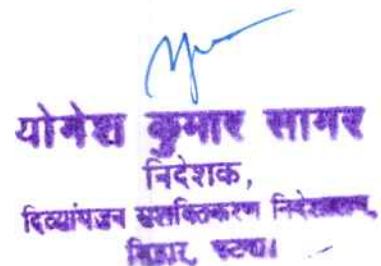 योगेश कुमार सागर
निदेशक,
दिव्यांगजन सशक्तिकरण निदेशालय,
बिहार, पटना।